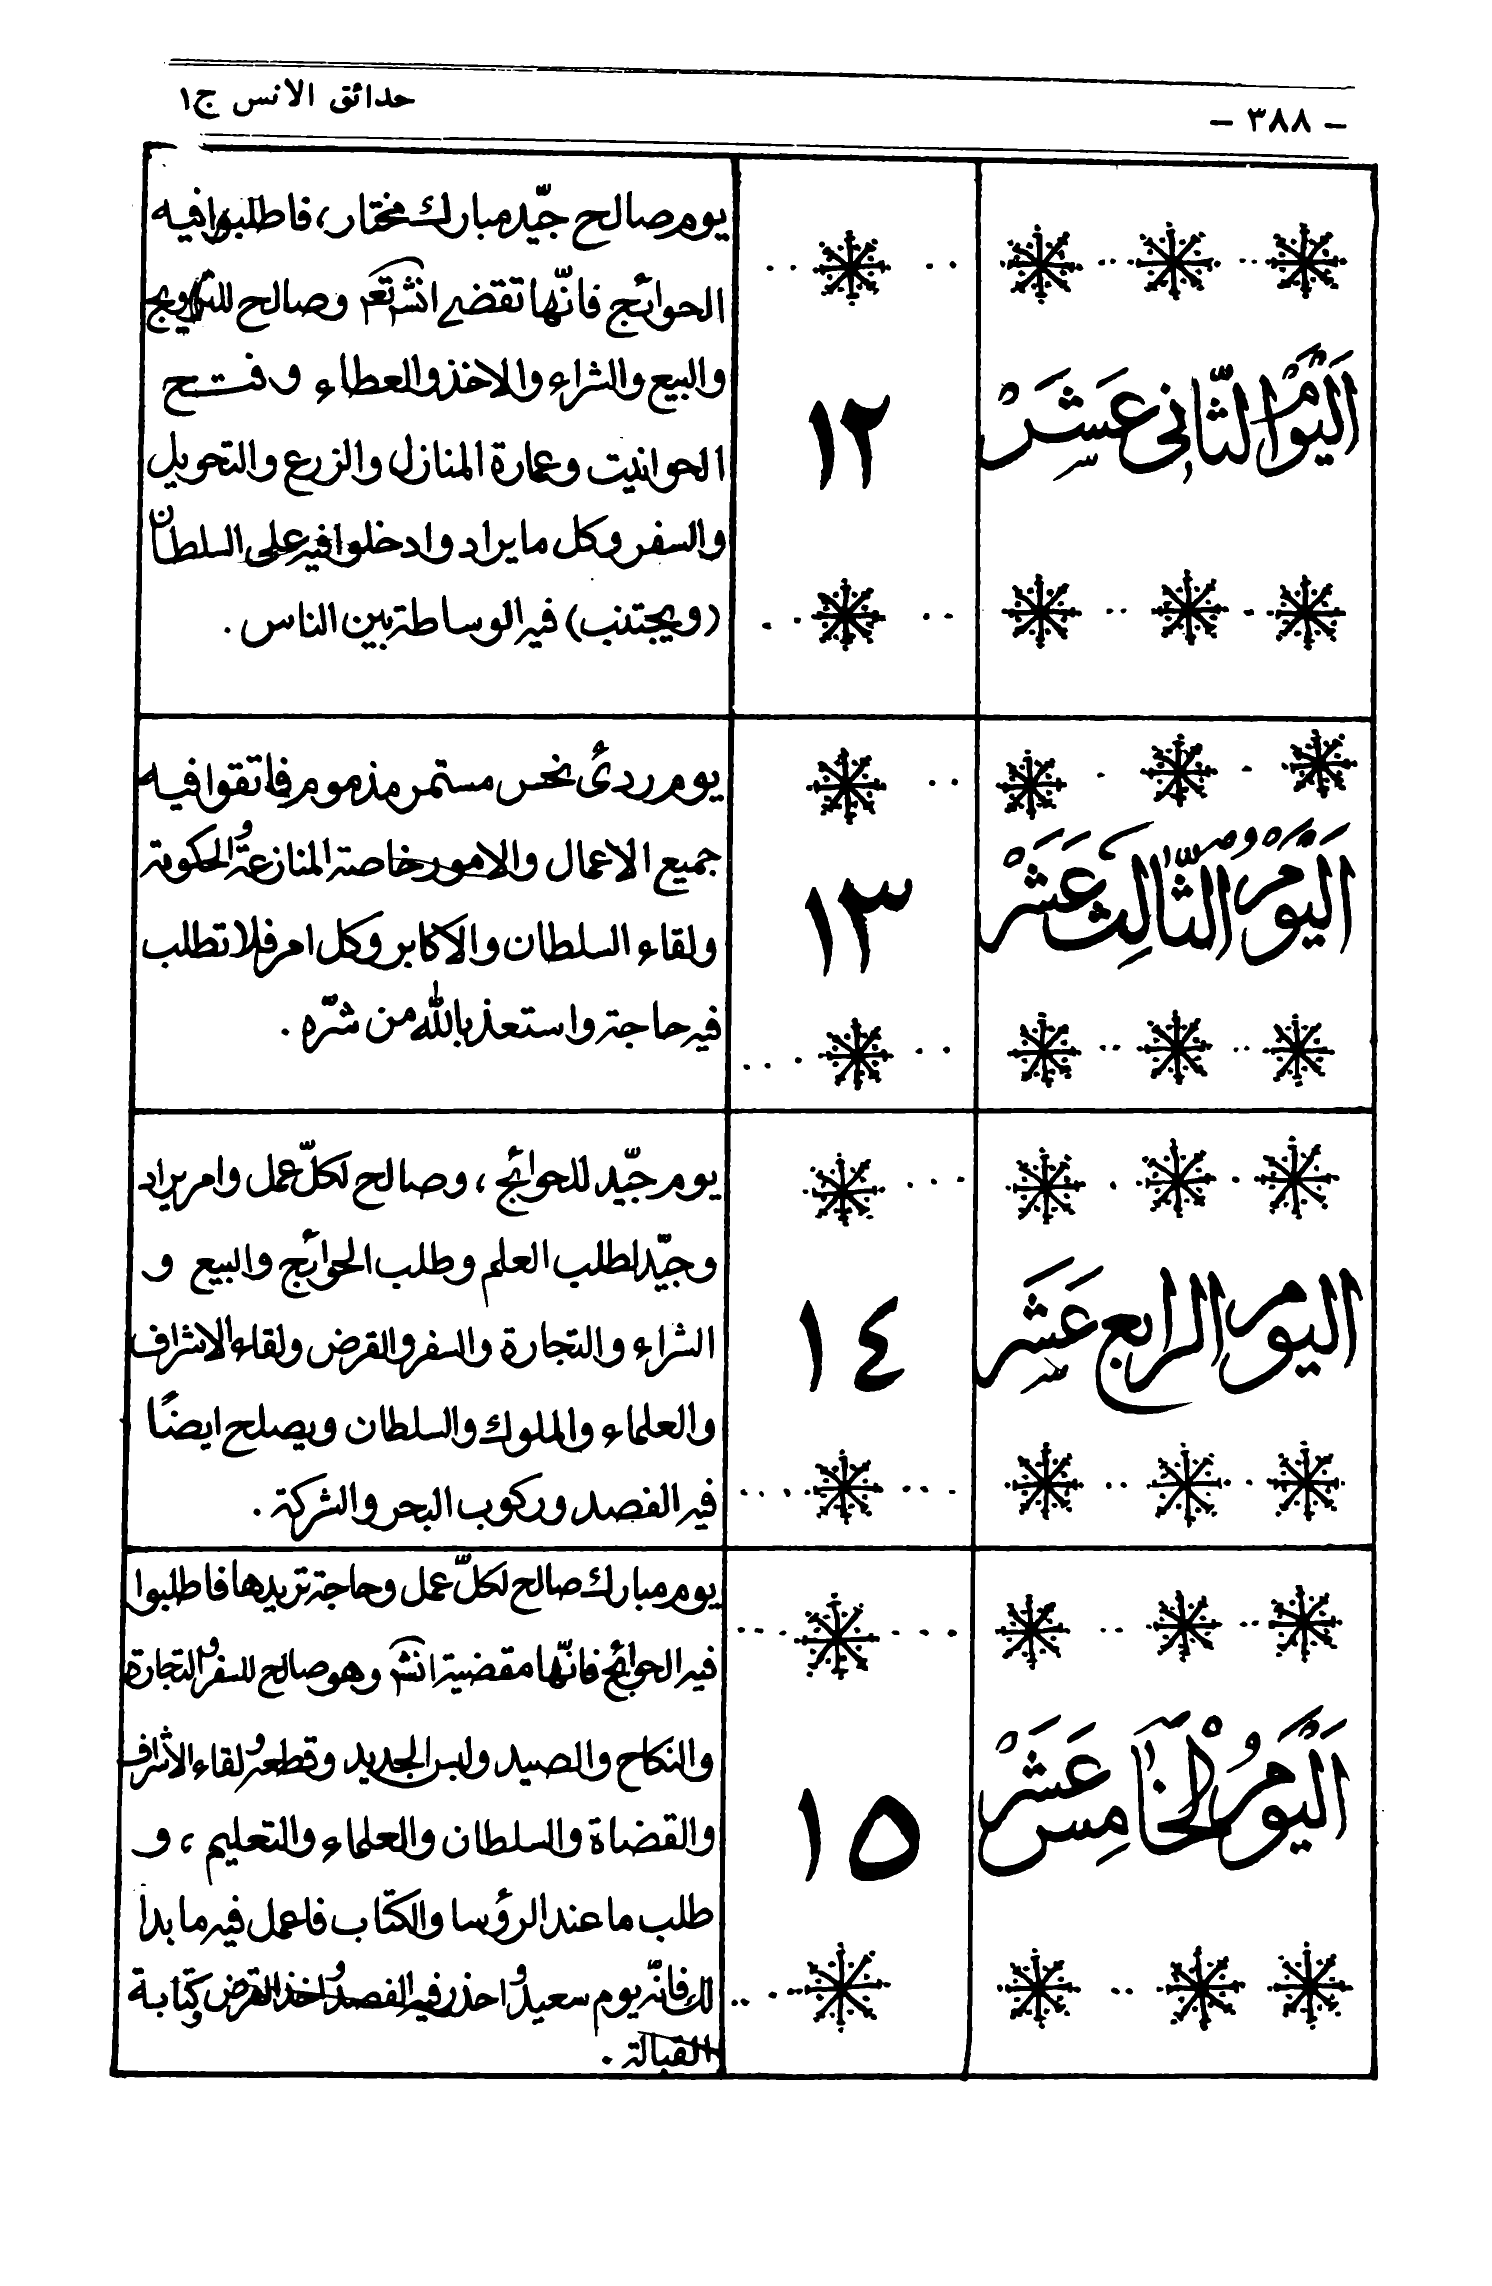 - ٣٨٨ -
حدائق الانس ج١
اليوم الثاني عشر
١٢
يوم صالح جيّد مبارك مختار، فاطلبوا فيه
الحوائج فانّها تقضے انشٓ تعم وصالح للتزويج
والبيع والشراء والاخذ والعطاء و فتح
الحوانيت وعمارة المنازل والزرع والتحويل
والسفر وكل ما يراد وادخلوا فيه على السلطان
(ويجتنب) فيه الوساطة بين الناس .
اليوم الثالث عشر
١٣
يوم ردئ نحس مستمر مذموم فاتقوا فيه
جميع الاعمال والامور خاصة المنازعة والحكومة
ولقاء السلطان والاكابر وكل امر فلا تطلب
فيه حاجة واستعذ بالله من شرّه .
اليوم الرابع عشر
١٤
يوم جيّد للحوائج ، وصالح لكلّ عمل وامر يراد
وجيّد لطلب العلم وطلب الحوائج والبيع و
الشراء والتجارة والسفر والقرض ولقاء الاشراف
والعلماء والملوك والسلطان ويصلح ايضًا
فيه الفصد وركوب البحر والشركة .
اليَومُ الخامس عشر
١٥
يوم مبارك صالح لكلّ عمل وحاجة تريدها فاطلبوا
فيه الحوائج فانّها مقضية انشٓ وهو صالح للسفر والتجارة
والنكاح والصيد ولبس الجديد وقطعه ولقاء الاشراف
والقضاة والسلطان والعلماء والتعليم ، و
طلب ما عند الرؤسا والكتاب فاعمل فيه ما بدا
لك فانّه يوم سعيد واحذر فيه الفصد واخذ القرض وكتابة
القبالة .